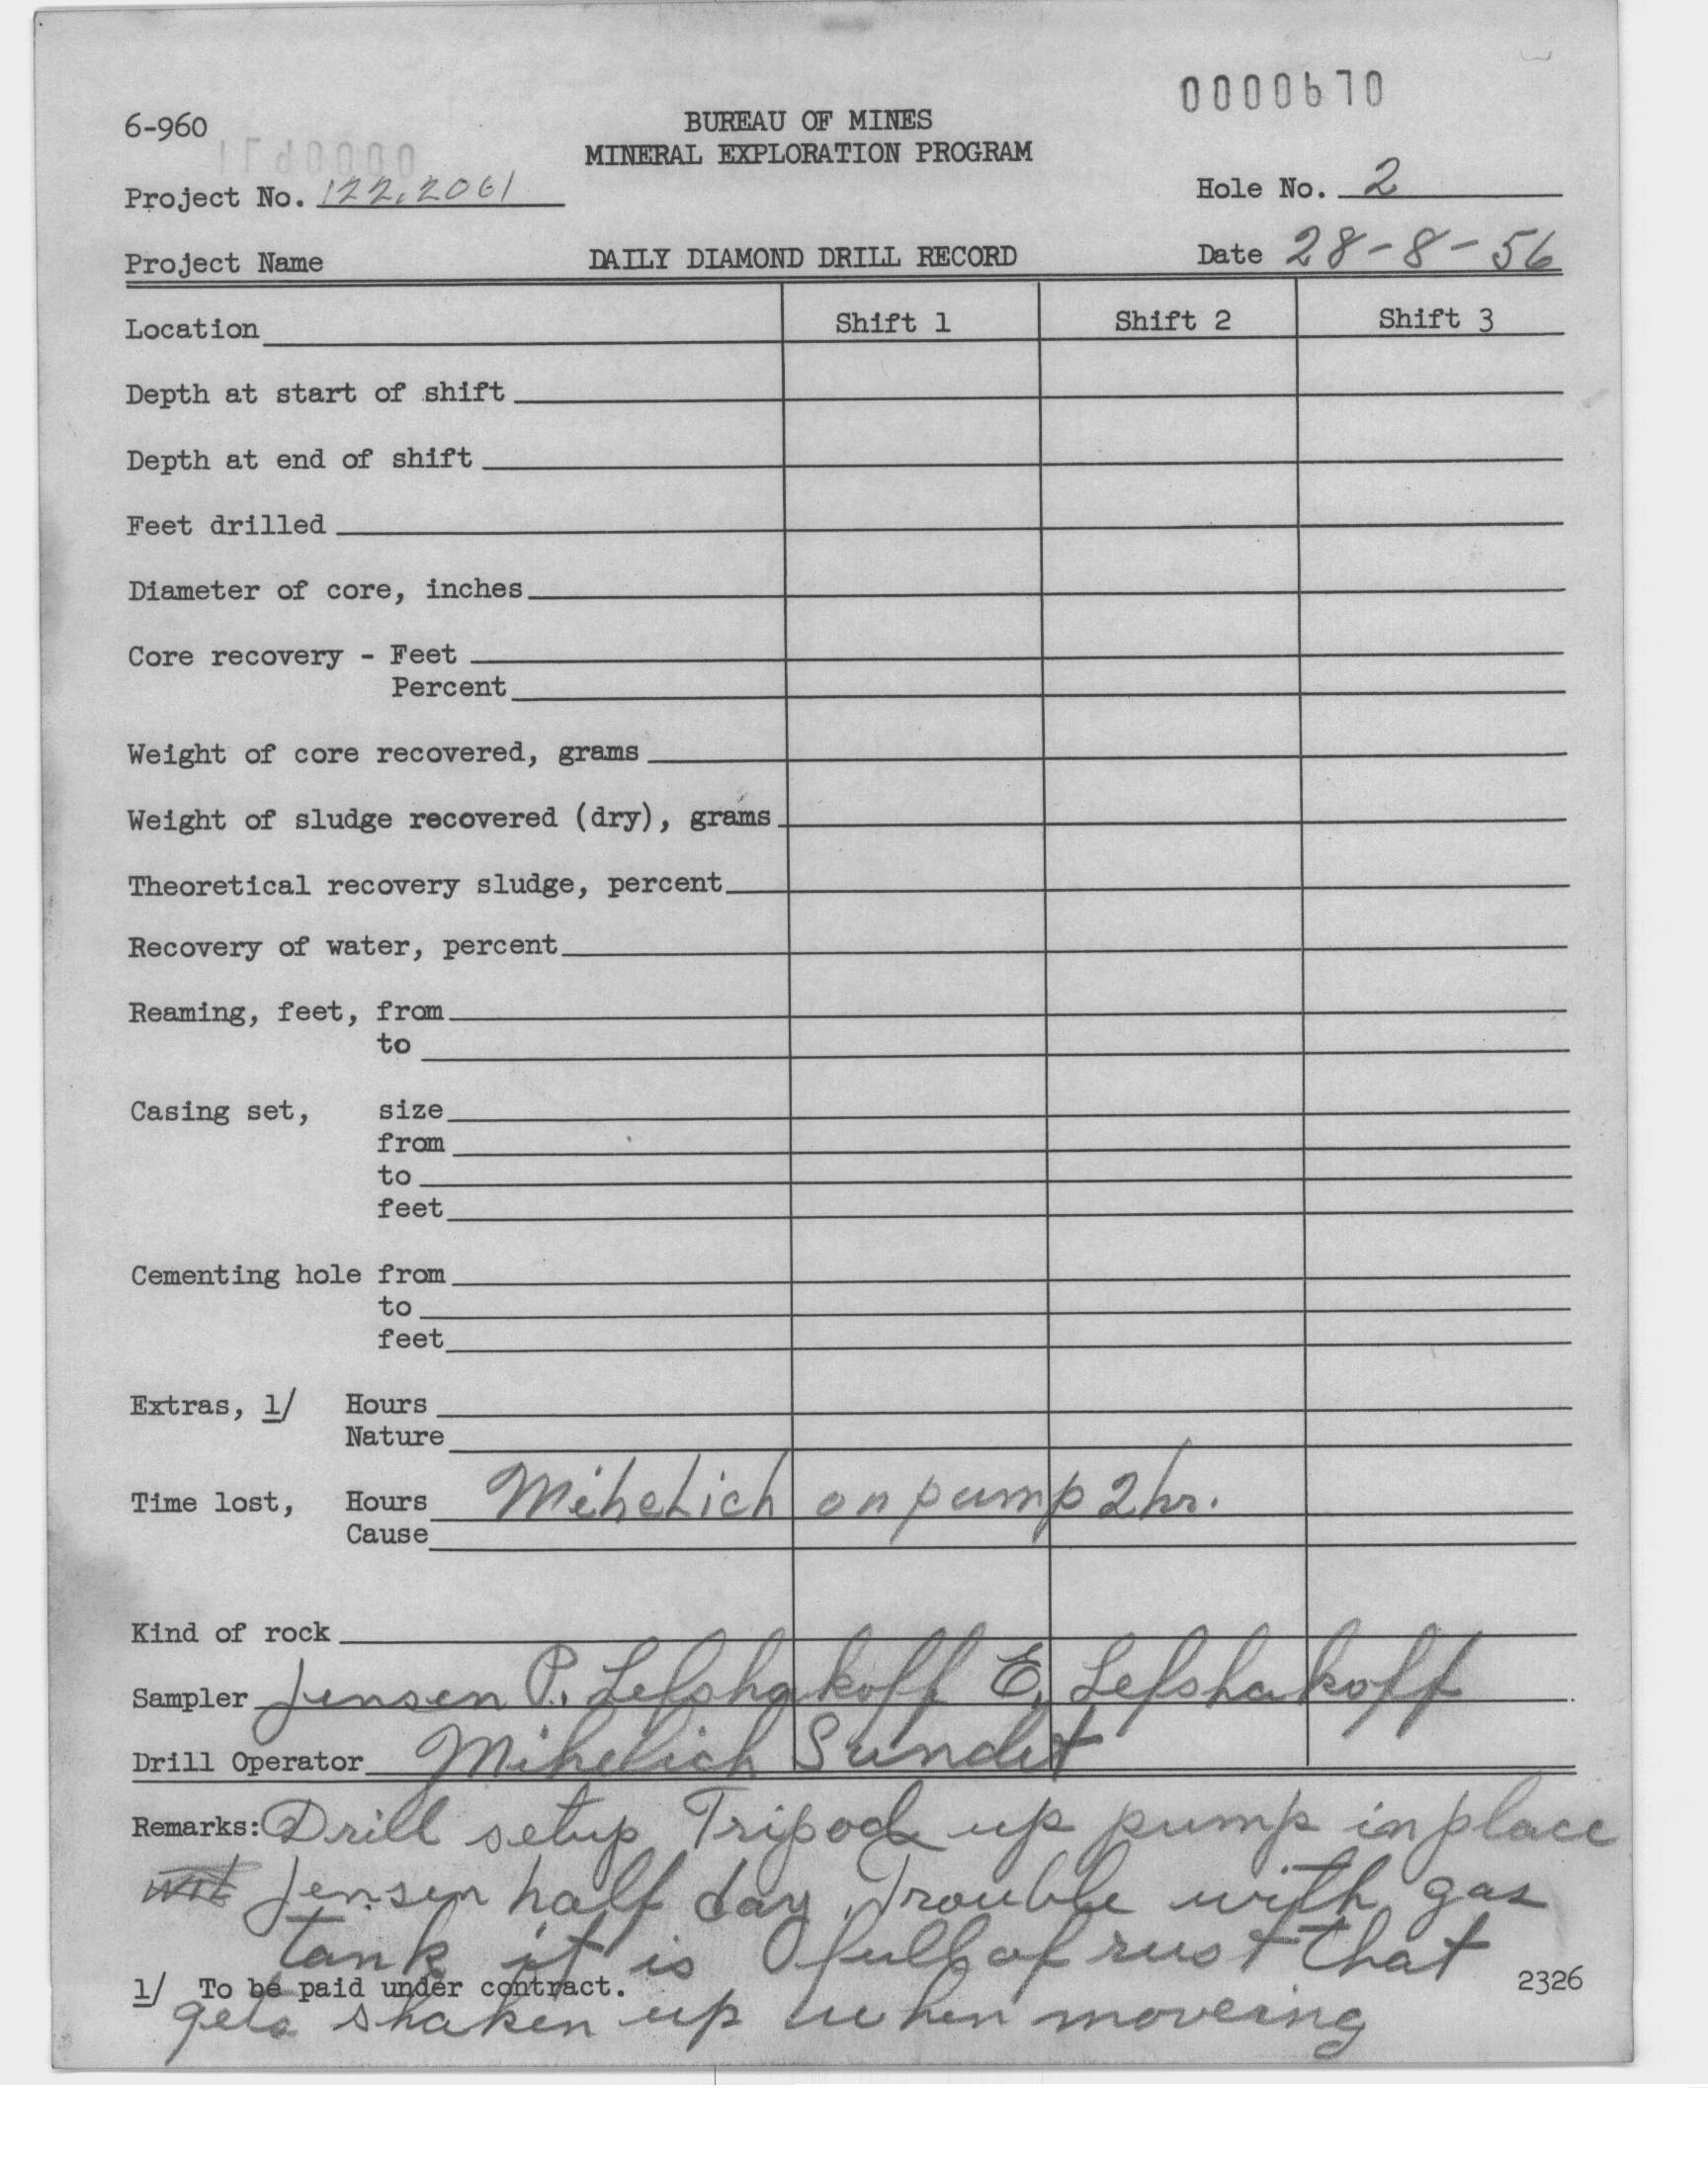 0000670
6-960
BUREAU OF MINES
MINERAL EXPLORATION PROGRAM
Project No. 122.2061
Hole No. 2
Project Name
DAILY DIAMOND DRILL RECORD
Date 28-8-56
Location Shift 1 Shift 2 Shift 3
Depth at start of shift
Depth at end of shift
Feet drilled
Diameter of core, inches
Core recovery - Feet
Percent
Weight of core recovered, grams
Weight of sludge recovered (dry), grams
Theoretical recovery sludge, percent
Recovery of water, percent
Reaming, feet, from
to
Casing set, size
from
to
feet
Cementing hole from
to
feet
Extras, 1/ Hours
Nature
Time lost, Hours Mihelich on pump 2 hr.
Cause
Kind of rock
Sampler Jensen P. Lefshakoff E. Lefshakoff
Drill Operator Mihelich Sundet
Remarks: Drill setup Tripod up pump in place
Jensen half day. Trouble with gas
tank it is full of rust that
1/ To be paid under contract. 2326
gets shaken up when moveing